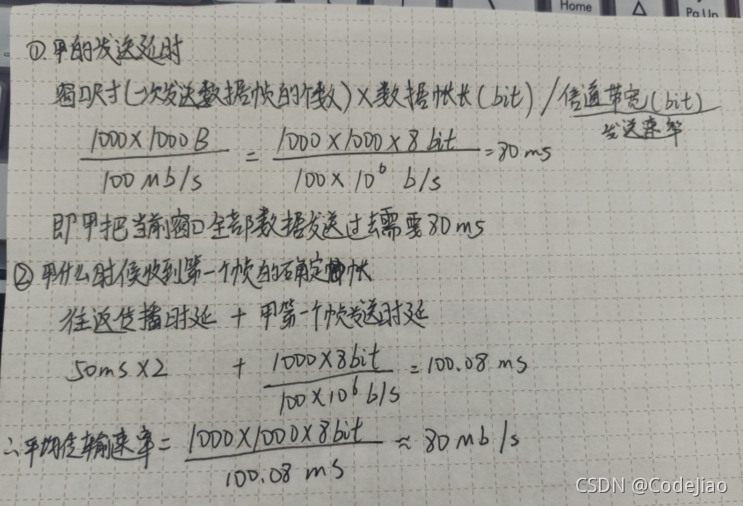 Home
Pg Up
①. 甲的发送延时
窗口尺寸(一次发送数据帧的个数) × 数据帧长(bit) / 信道带宽(bit)
发送速率
1000×1000B / 100 Mb/s = 1000×1000×8bit / 100×10⁶ b/s = 80ms
即甲把当前窗口全部数据发送过去需要80ms
② 甲什么时候收到第一个帧的确定帧
往返传播时延 + 甲第一个帧发送时延
50ms×2 + 1000×8bit / 100×10⁶ b/s = 100.08 ms
∴平均传输速率= 1000×1000×8bit / 100.08 ms ≈ 80 mb/s
CSDN @Codejiao